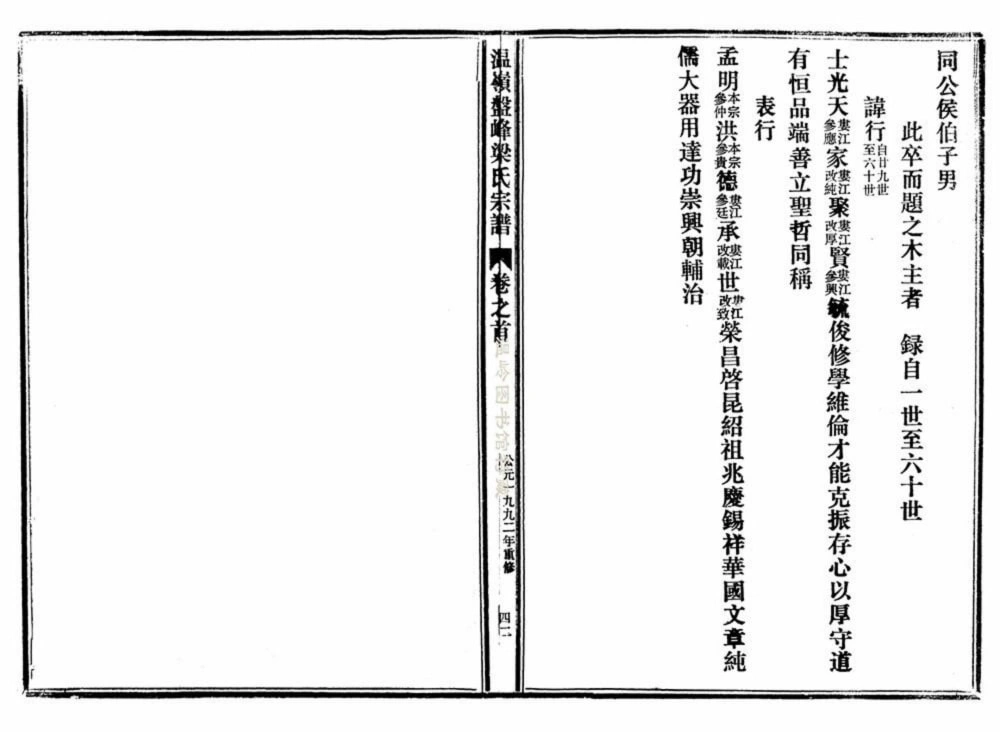 同公侯伯子男
此卒而題之木主者　録自一世至六十世
諱行自廿九世至六十世
士光天婁江參應家婁江改純聚婁江改厚賢婁江參興毓俊修學維倫才能克振存心以厚守道
有恒品端善立聖哲同稱
表行
孟明本宗參仲洪本宗參貴德婁江參廷承婁江改載世婁江改致榮昌啓昆紹祖兆慶錫祥華國文章純
儒大器用達功崇興朝輔治
温嶺盤峰梁氏宗譜　卷之首
公元一九九二年重修
四二